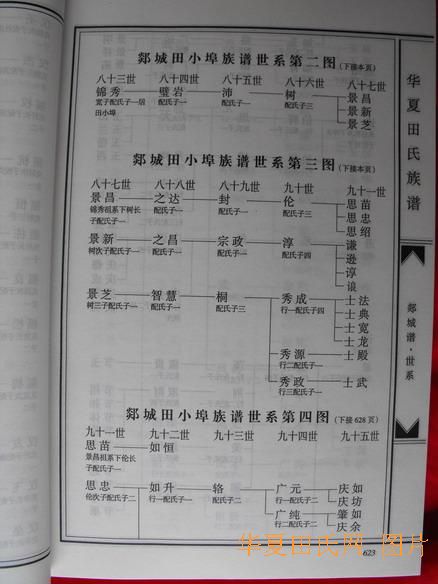 郯城田小埠族谱世系第二图(下接本页)
八十三世 八十四世 八十五世 八十六世 八十七世
锦秀 璧岩 沛 树 景昌
宽子配氏子一居 配氏子一 配氏子一 配氏子三 景新
田小埠 景芝
郯城田小埠族谱世系第三图(下接本页)
八十七世 八十八世 八十九世 九十世 九十一世
景昌 之达 封 伦 思苗
锦秀祖系下树长 配氏子一 配氏子一 配氏子三 思忠
子配氏子一 思绍
景新 之昌 宗政 淳 谦
树次子配氏子一 配氏子一 配氏子一 配氏子四 逊
谆
谅
景芝 智慧 桐 秀成 士法
树三子配氏子一 配氏子一 配氏子三 行一配氏子四 士典
士宽
士龙
秀源 士殿
行二配氏子一
秀政 士武
行三配氏子一
郯城田小埠族谱世系第四图(下接628页)
九十一世 九十二世 九十三世 九十四世 九十五世
思苗 如恒
景昌祖系下伦长
子配氏子一
思忠 如升 辂 广元 庆如
伦次子配氏子一 行一配氏子一 配氏子二 行一配氏子二 庆坊
广纯 肇如
行二配氏子二 庆余
华夏田氏族谱
郯城谱·世系
623
华夏田氏网 图片